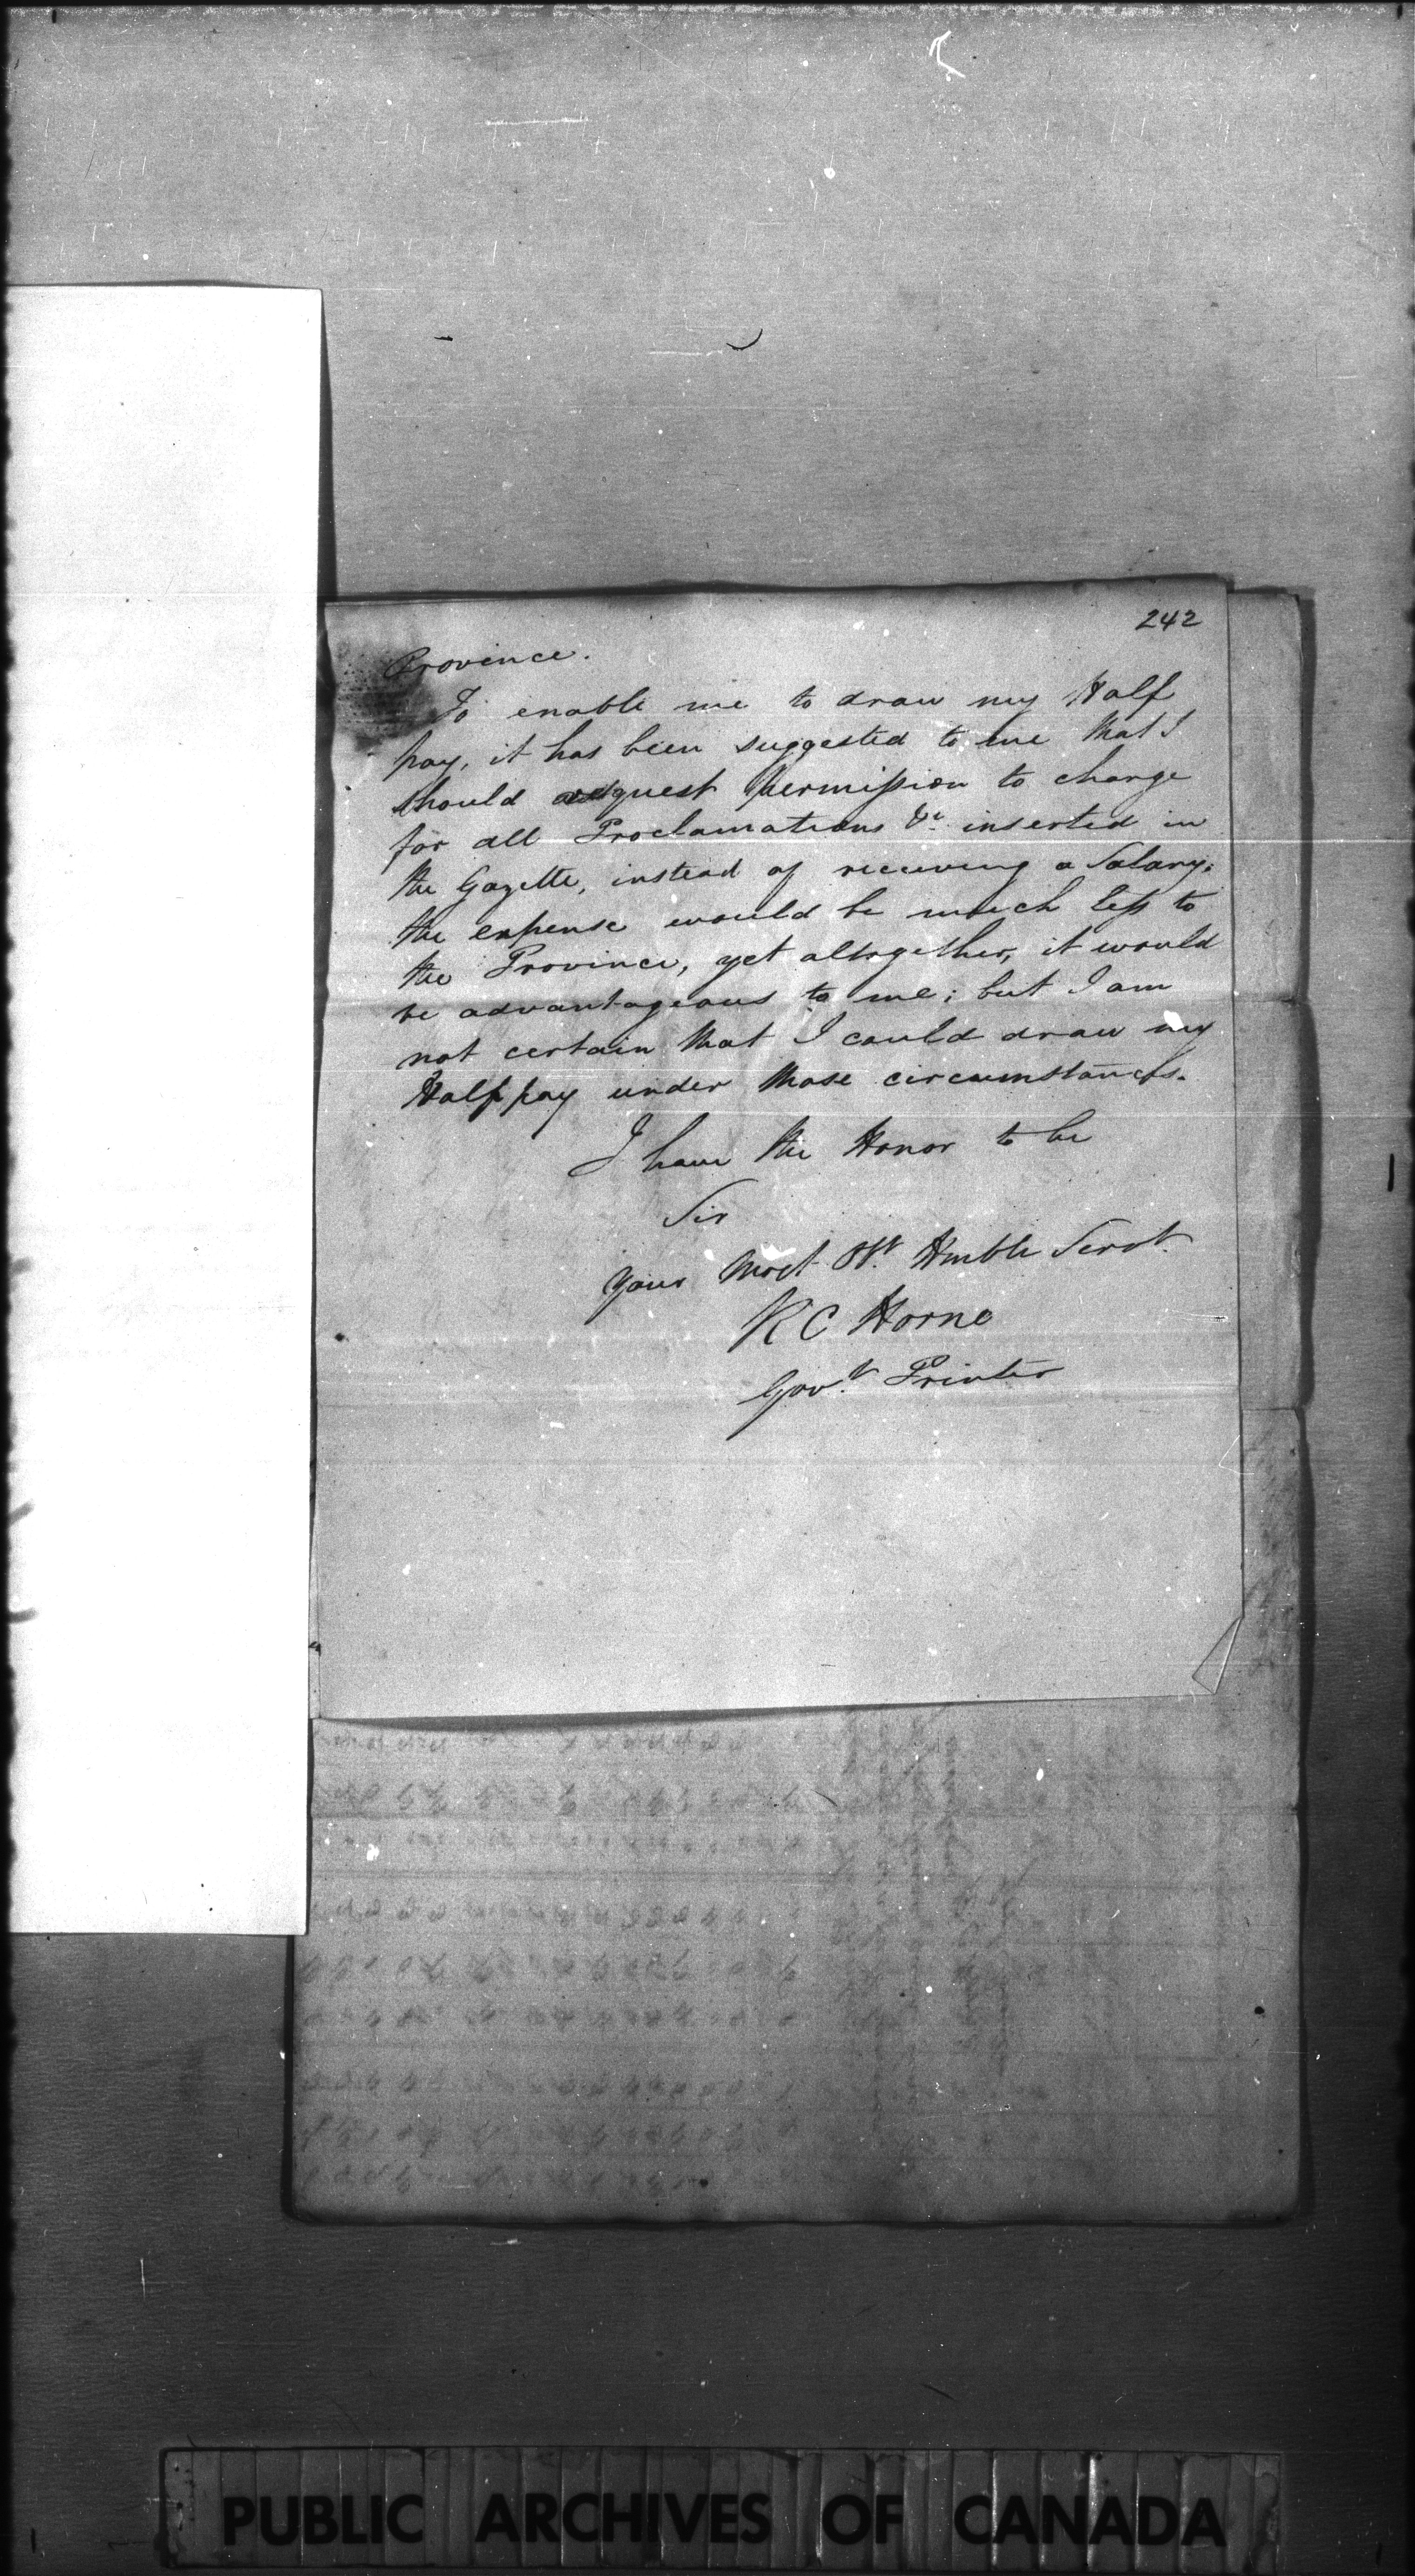 242
Province.
To enable me to draw my Half
pay, it has been suggested to me that I
should request permission to charge
for all Proclamations &c inserted in
the Gazette, instead of receiving a Salary;
the expense would be much less to
the Province, yet altogether, it would
be advantageous to me; but I am
not certain that I could draw my
Half pay under those circumstances.
I have the Honor to be
Sir
Your most Obt. Humble Servt.
R C Horne
Govt. Printer
PUBLIC ARCHIVES OF CANADA